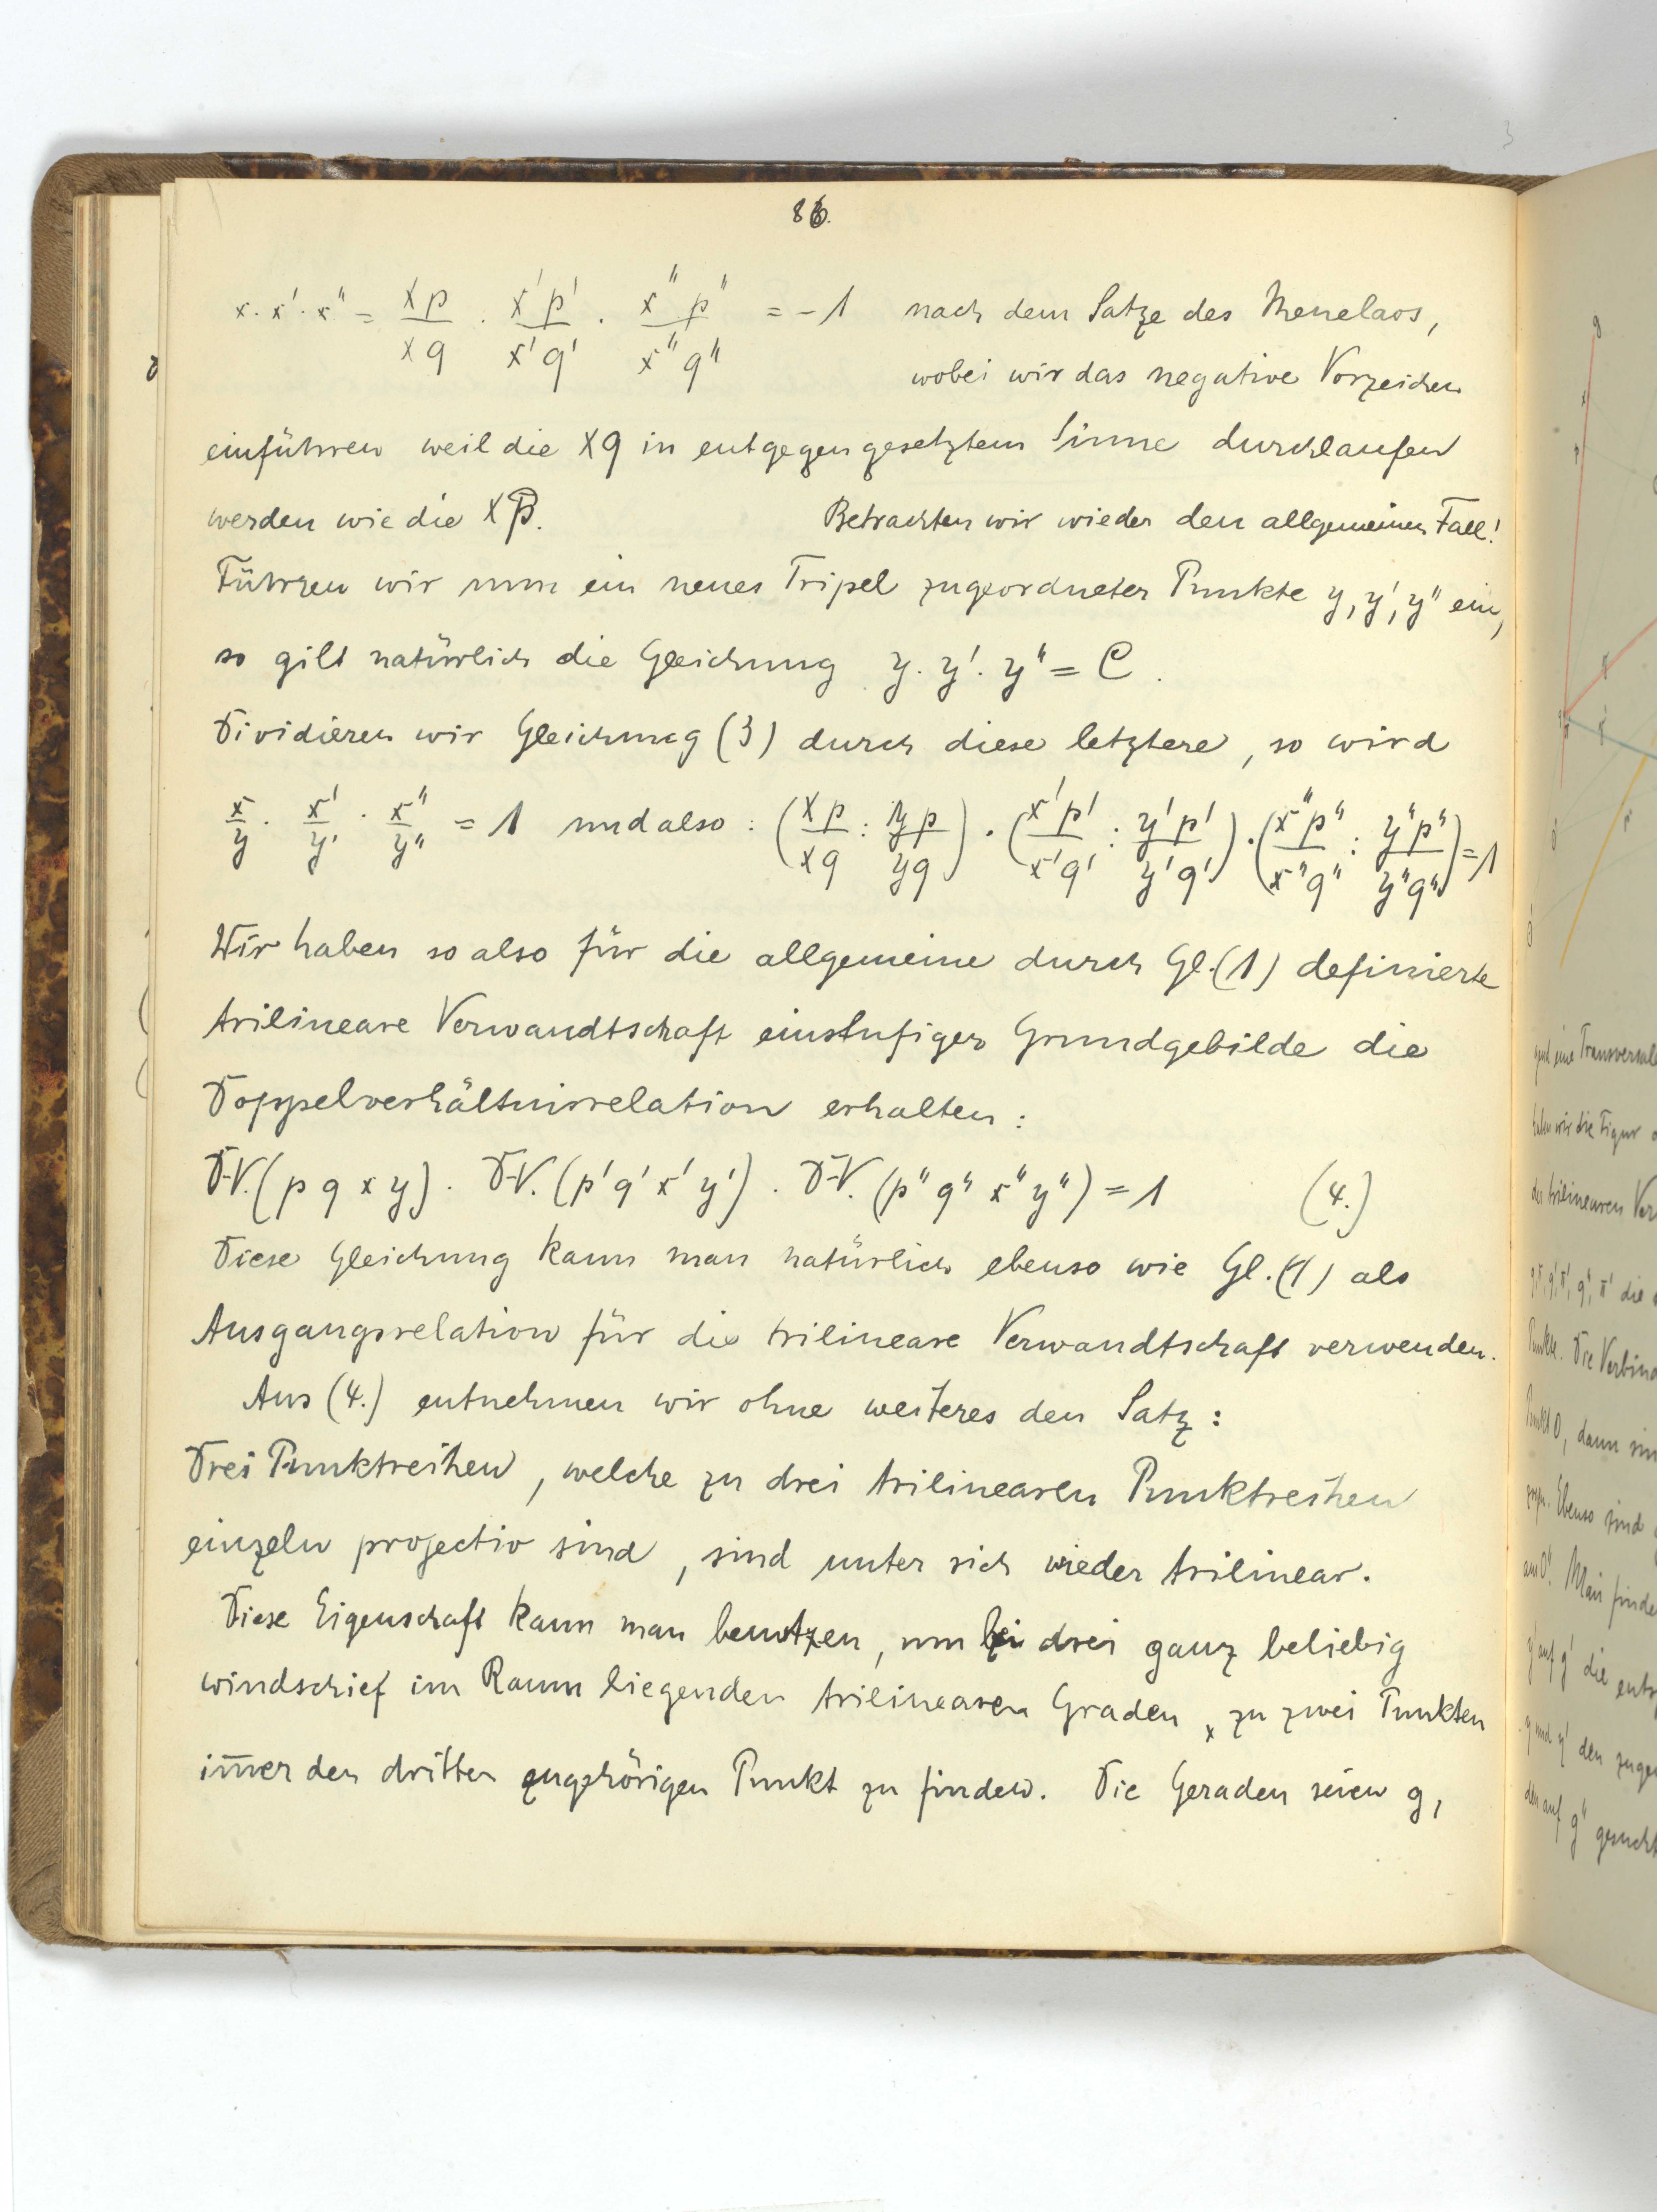 86.
x · x' · x" = xp/xq · x'p'/x'q' · x"p"/x"q" = -1 nach dem Satze des Menelaos,
wobei wir das negative Vorzeichen
einführen weil die xq in entgegengesetztem Sinne durchlaufen
werden wie die xp. Betrachten wir wieder den allgemeinen Fall!
Führen wir nun ein neues Tripel zugeordneter Punkte y, y', y" ein,
so gilt natürlich die Gleichung y · y' · y" = C.
Dividieren wir Gleichung (3) durch diese letztere, so wird
x/y · x'/y' · x"/y" = 1 und also: (xp/xq : yp/yq) · (x'p'/x'q' : y'p'/y'q') · (x"p"/x"q" : y"p"/y"q") = 1
Wir haben so also für die allgemeine durch Gl. (1) definierte
trilineare Verwandtschaft einstufiger Grundgebilde die
Doppelverhältnisrelation erhalten:
D-V. (p q x y) · D-V. (p' q' x' y') · D-V. (p" q" x" y") = 1 (4.)
Diese Gleichung kann man natürlich ebenso wie Gl. (1) als
Ausgangsrelation für die trilineare Verwandtschaft verwenden.
Aus (4.) entnehmen wir ohne weiteres den Satz:
Drei Punktreihen, welche zu drei trilinearen Punktreihen
einzeln projectiv sind, sind unter sich wieder trilinear.
Diese Eigenschaft kann man benutzen, um bei drei ganz beliebig
windschief im Raum liegenden trilinearen Graden, zu zwei Punkten
im̄er den dritten zugehörigen Punkt zu finden. Die Geraden seien g,
eine Transversale
haben wir die Figur
der trilinearen
die
Punkte. Die
Punkt O, dann
Ebenso sind
aus O'. Man
y' auf g' die
den
den auf g"